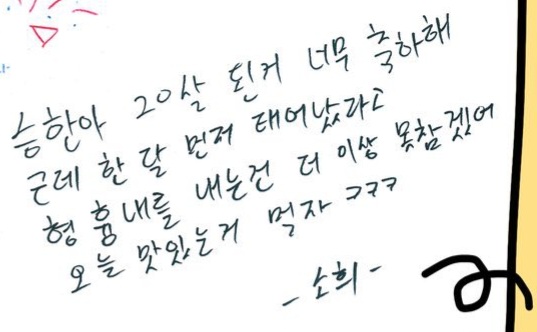 승한아 20살 된거 너무 축하해
근데 한 달 먼저 태어났다고
형 흉내를 내는건 더 이상 못참겠어
오늘 맛있는거 먹자 ㅋㅋㅋ
- 소희 -